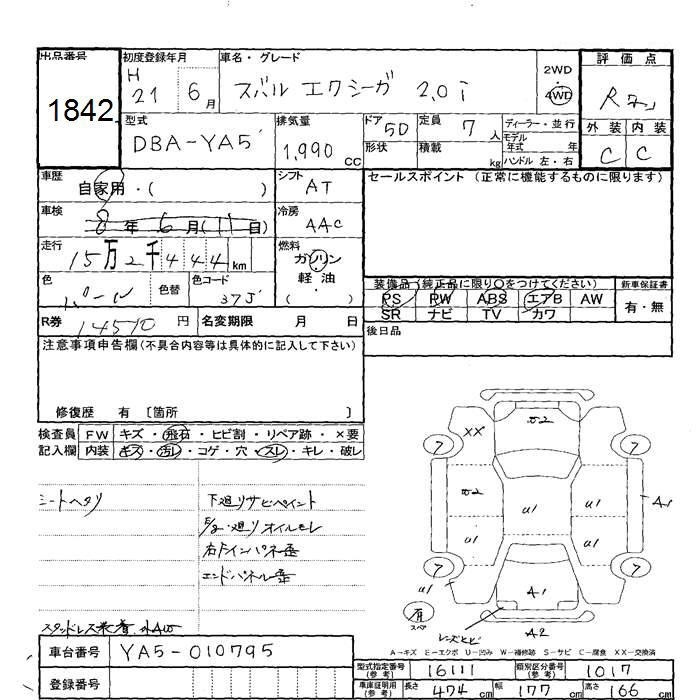 出品番号
1842
初度登録年月
H 21 6月
車名・グレード
スバル エクシーガ 2.0i
2WD
4WD
評価点
外装 内装
C C
型式
DBA-YA5
排気量
1,990 cc
ドア 5D
形状
定員 7 人
積載 kg
ディーラー・並行
モデル年式 年
ハンドル 左・右
車歴
自家用・( )
シフト AT
車検
8年6月(11日)
冷房 AAC
走行
15万2千444km
燃料
ガソリン
軽油・
( )
色
パール
色替
色コード 37J
R券 14510円
名変期限 月 日
セールスポイント (正常に機能するものに限ります)
装備品 (純正品に限り○をつけてください)
PS PW ABS エアB AW
SR ナビ TV カワ
新車保証書
有・無
後日品
注意事項申告欄(不具合内容等は具体的に記入して下さい)
修復歴 有〔箇所 〕
検査員記入欄
FW キズ・飛石・ヒビ割・リペア跡・×要
内装 キズ・汚レ・コゲ・穴・スレ・キレ・破レ
シートヘタリ
下廻リサビペイント
右インパネ歪
エンドパネル歪
スタッドレス装着
XX
A2
U1
U1
U1
U1
U1
A1
A1
A2
7
7
7
7
有
スペ
レーズヒビ
A-キズ E-エクボ U-凹み W-補修跡 S-サビ C-腐食 XX-交換済
車台番号 YA5-010795
登録番号
型式指定番号(参考) 16111
類別区分番号(参考) 1017
車庫証明用(参考)
長さ 474 cm
幅 177 cm
高さ 166 cm